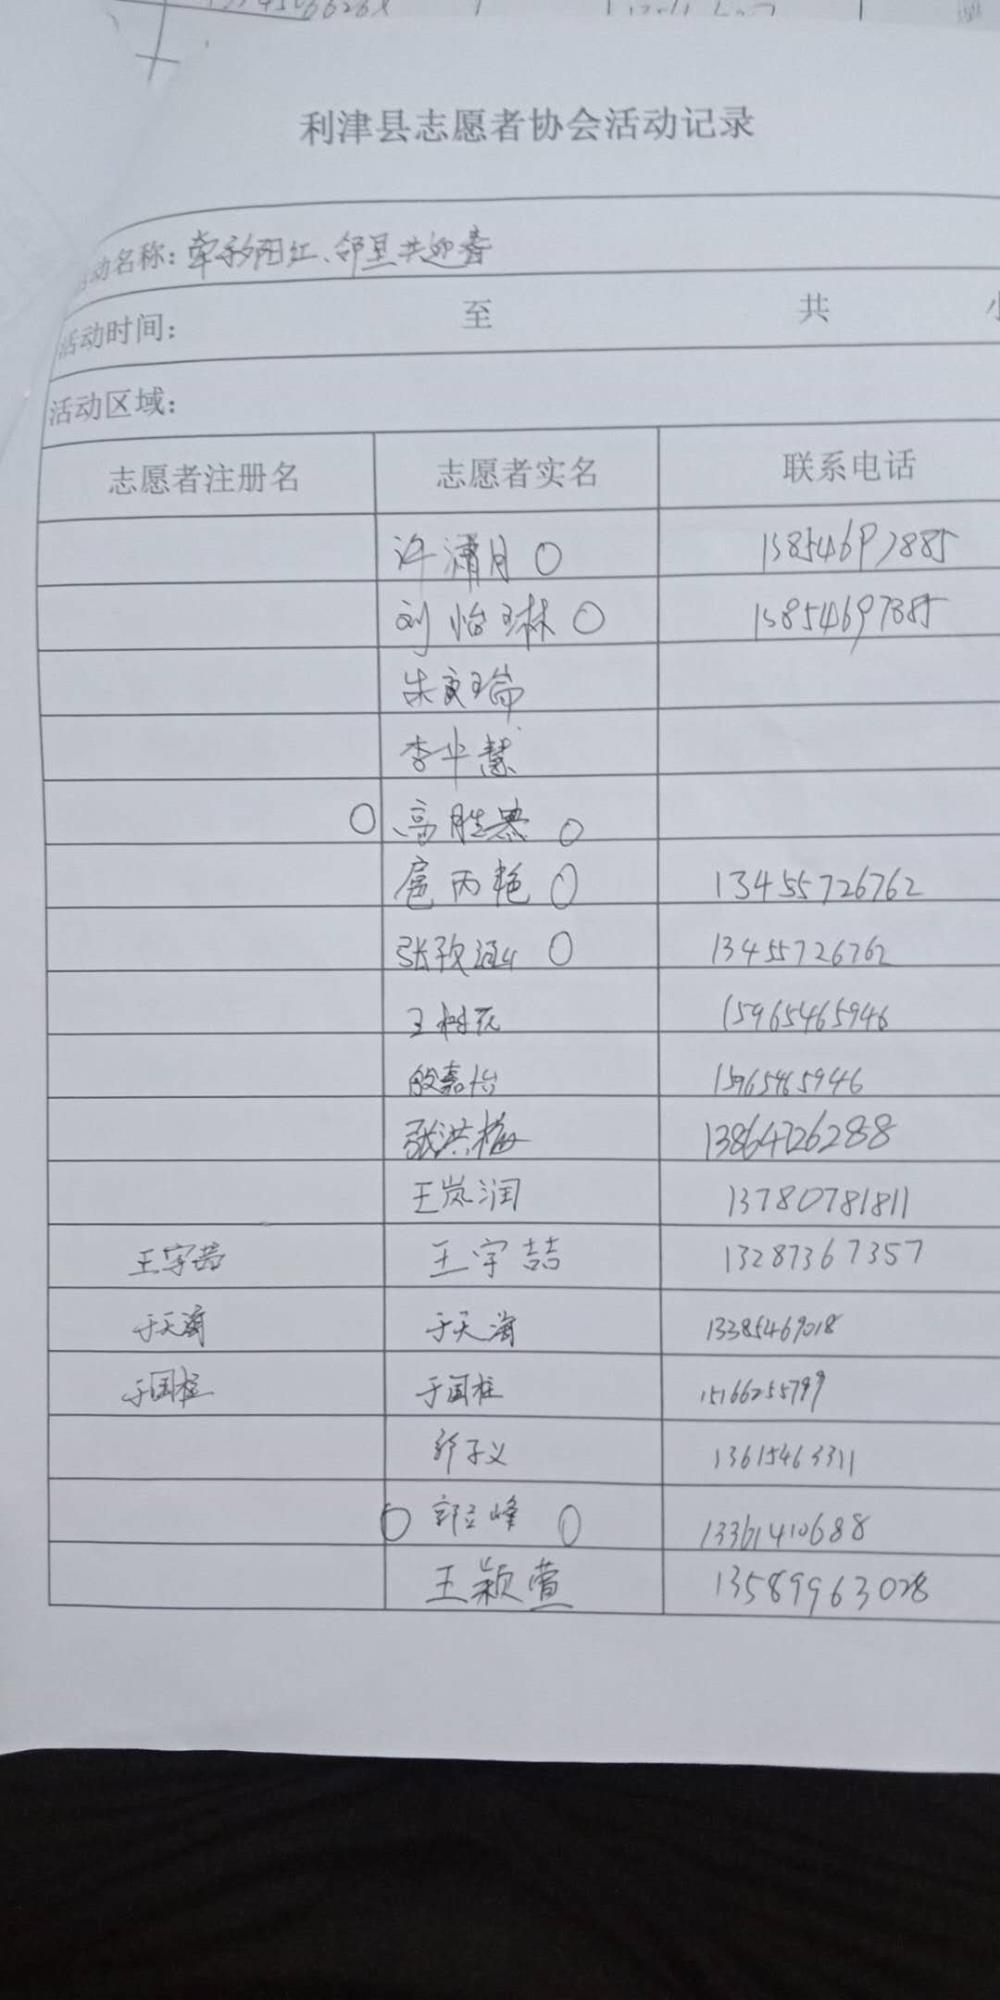 利津县志愿者协会活动记录
动名称：牵手夕阳红、邻里共迎春
活动时间： 至 共 小
活动区域：
志愿者注册名 志愿者实名 联系电话
许潇月 13854697885
刘怡琳 13854697885
朱瑞
李华慧
高胜
扈丙艳 13455726762
张孜涵 13455726762
王树花 15965465946
殷嘉怡 15965465946
张洪梅 13864726288
王岚润 13780781811
王宇喆 王宇喆 13287367357
于天海 于天海 13385469018
于国柱 于国柱 15166255799
子义 13615463311
郭立峰 13361410688
王颖萱 13589963028